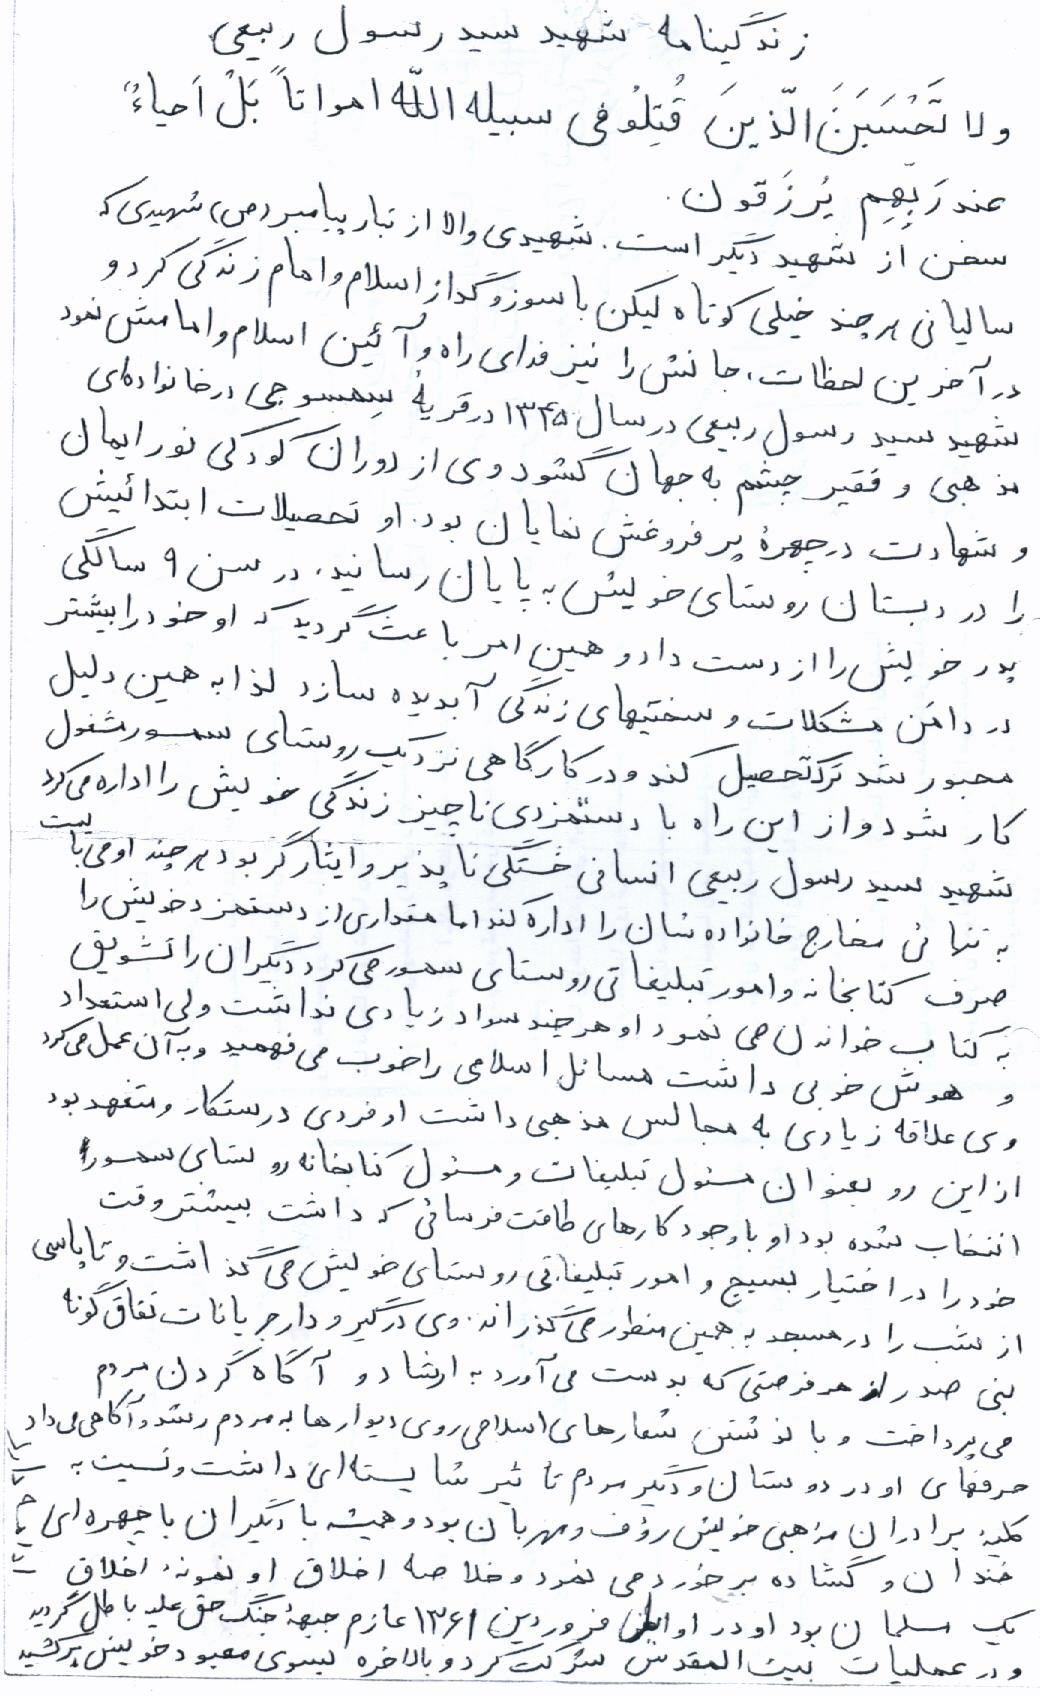 زندگینامه شهید سید رسول ربیعی
ولا تَحْسَبَنَّ الّذینَ قُتِلُو فی سبیله اللّه امواتاً بَلْ اَحیاءُ
عند رَبِّهِم یُرزَقون.
سخن از شهید دیگر است. شهیدی والا از تبار پیامبر (ص) شهیدی که
سالیانی هر چند خیلی کوتاه لیکن با سوز و گداز اسلام و امام زندگی کرد و
در آخرین لحظات، جانش را نیز فدای راه و آئین اسلام و امامش نمود
شهید سید رسول ربیعی در سال ۱۳۴۵ در قریهٔ در خانواده‌ای
مذهبی و فقیر چشم به جهان گشود وی از دوران کودکی نور ایمان
و شهادت در چهرهٔ پر فروغش نمایان بود. او تحصیلات ابتدائیش
را در دبستان روستای خویش به پایان رسانید، در سن ۹ سالگی
پدر خویش را از دست داد و همین امر باعث گردید که او خود را بیشتر
در دامن مشکلات و سختیهای زندگی آبدیده سازد لذا به همین دلیل
مجبور شد ترک تحصیل کند و در کارگاهی نزدیک روستای سمسور مشغول
کار شود و از این راه با دستمزدی ناچیز زندگی خویش را اداره می‌کرد
شهید سید رسول ربیعی انسانی خستگی ناپذیر و ایثارگر بود هر چند او می بایست
به تنهائی مخارج خانواده شان را اداره کند اما مقداری از دستمزد خویش را
صرف کتابخانه و امور تبلیغاتی روستای سمسور می کرد دیگران را تشویق
به کتاب خواندن می نمود او هر چند سواد زیادی نداشت ولی استعداد
و هوش خوبی داشت مسائل اسلامی را خوب می فهمید و به آن عمل می کرد
وی علاقه زیادی به مجالس مذهبی داشت او فردی درستکار و متعهد بود
از این رو بعنوان مسئول تبلیغات و مسئول کتابخانه روستای سمسور
انتخاب شده بود او با وجود کارهای طاقت فرسائی که داشت بیشتر وقت
خود را در اختیار بسیج و امور تبلیغاتی روستای خویش می گذاشت و تا پاسی
از شب را در مسجد به همین منظور می گذراند. وی درگیر و دار جریانات نفاق گونه
بنی صدر از هر فرصتی که بدست می آورد به ارشاد و آگاه گردن مردم
می پرداخت و با نوشتن شعارهای اسلامی روی دیوارها به مردم رشد و آگاهی می داد
حرفهای او در دوستان و دیگر مردم تأثیر شایسته ای داشت و نسبت به
کلیهٔ برادران مذهبی خویش رؤف و مهربان بود و همیشه با دیگران با چهره ای
خندان و گشاده برخورد می نمود و خلاصه اخلاق او نمونهٔ اخلاق
یک مسلمان بود او در اوایل فروردین ۱۳۶۱ عازم جبههٔ جنگ حق علیه باطل گردید
و در عملیات بیت المقدس شرکت کرد و بالاخره بسوی معبود خویش پر کشید